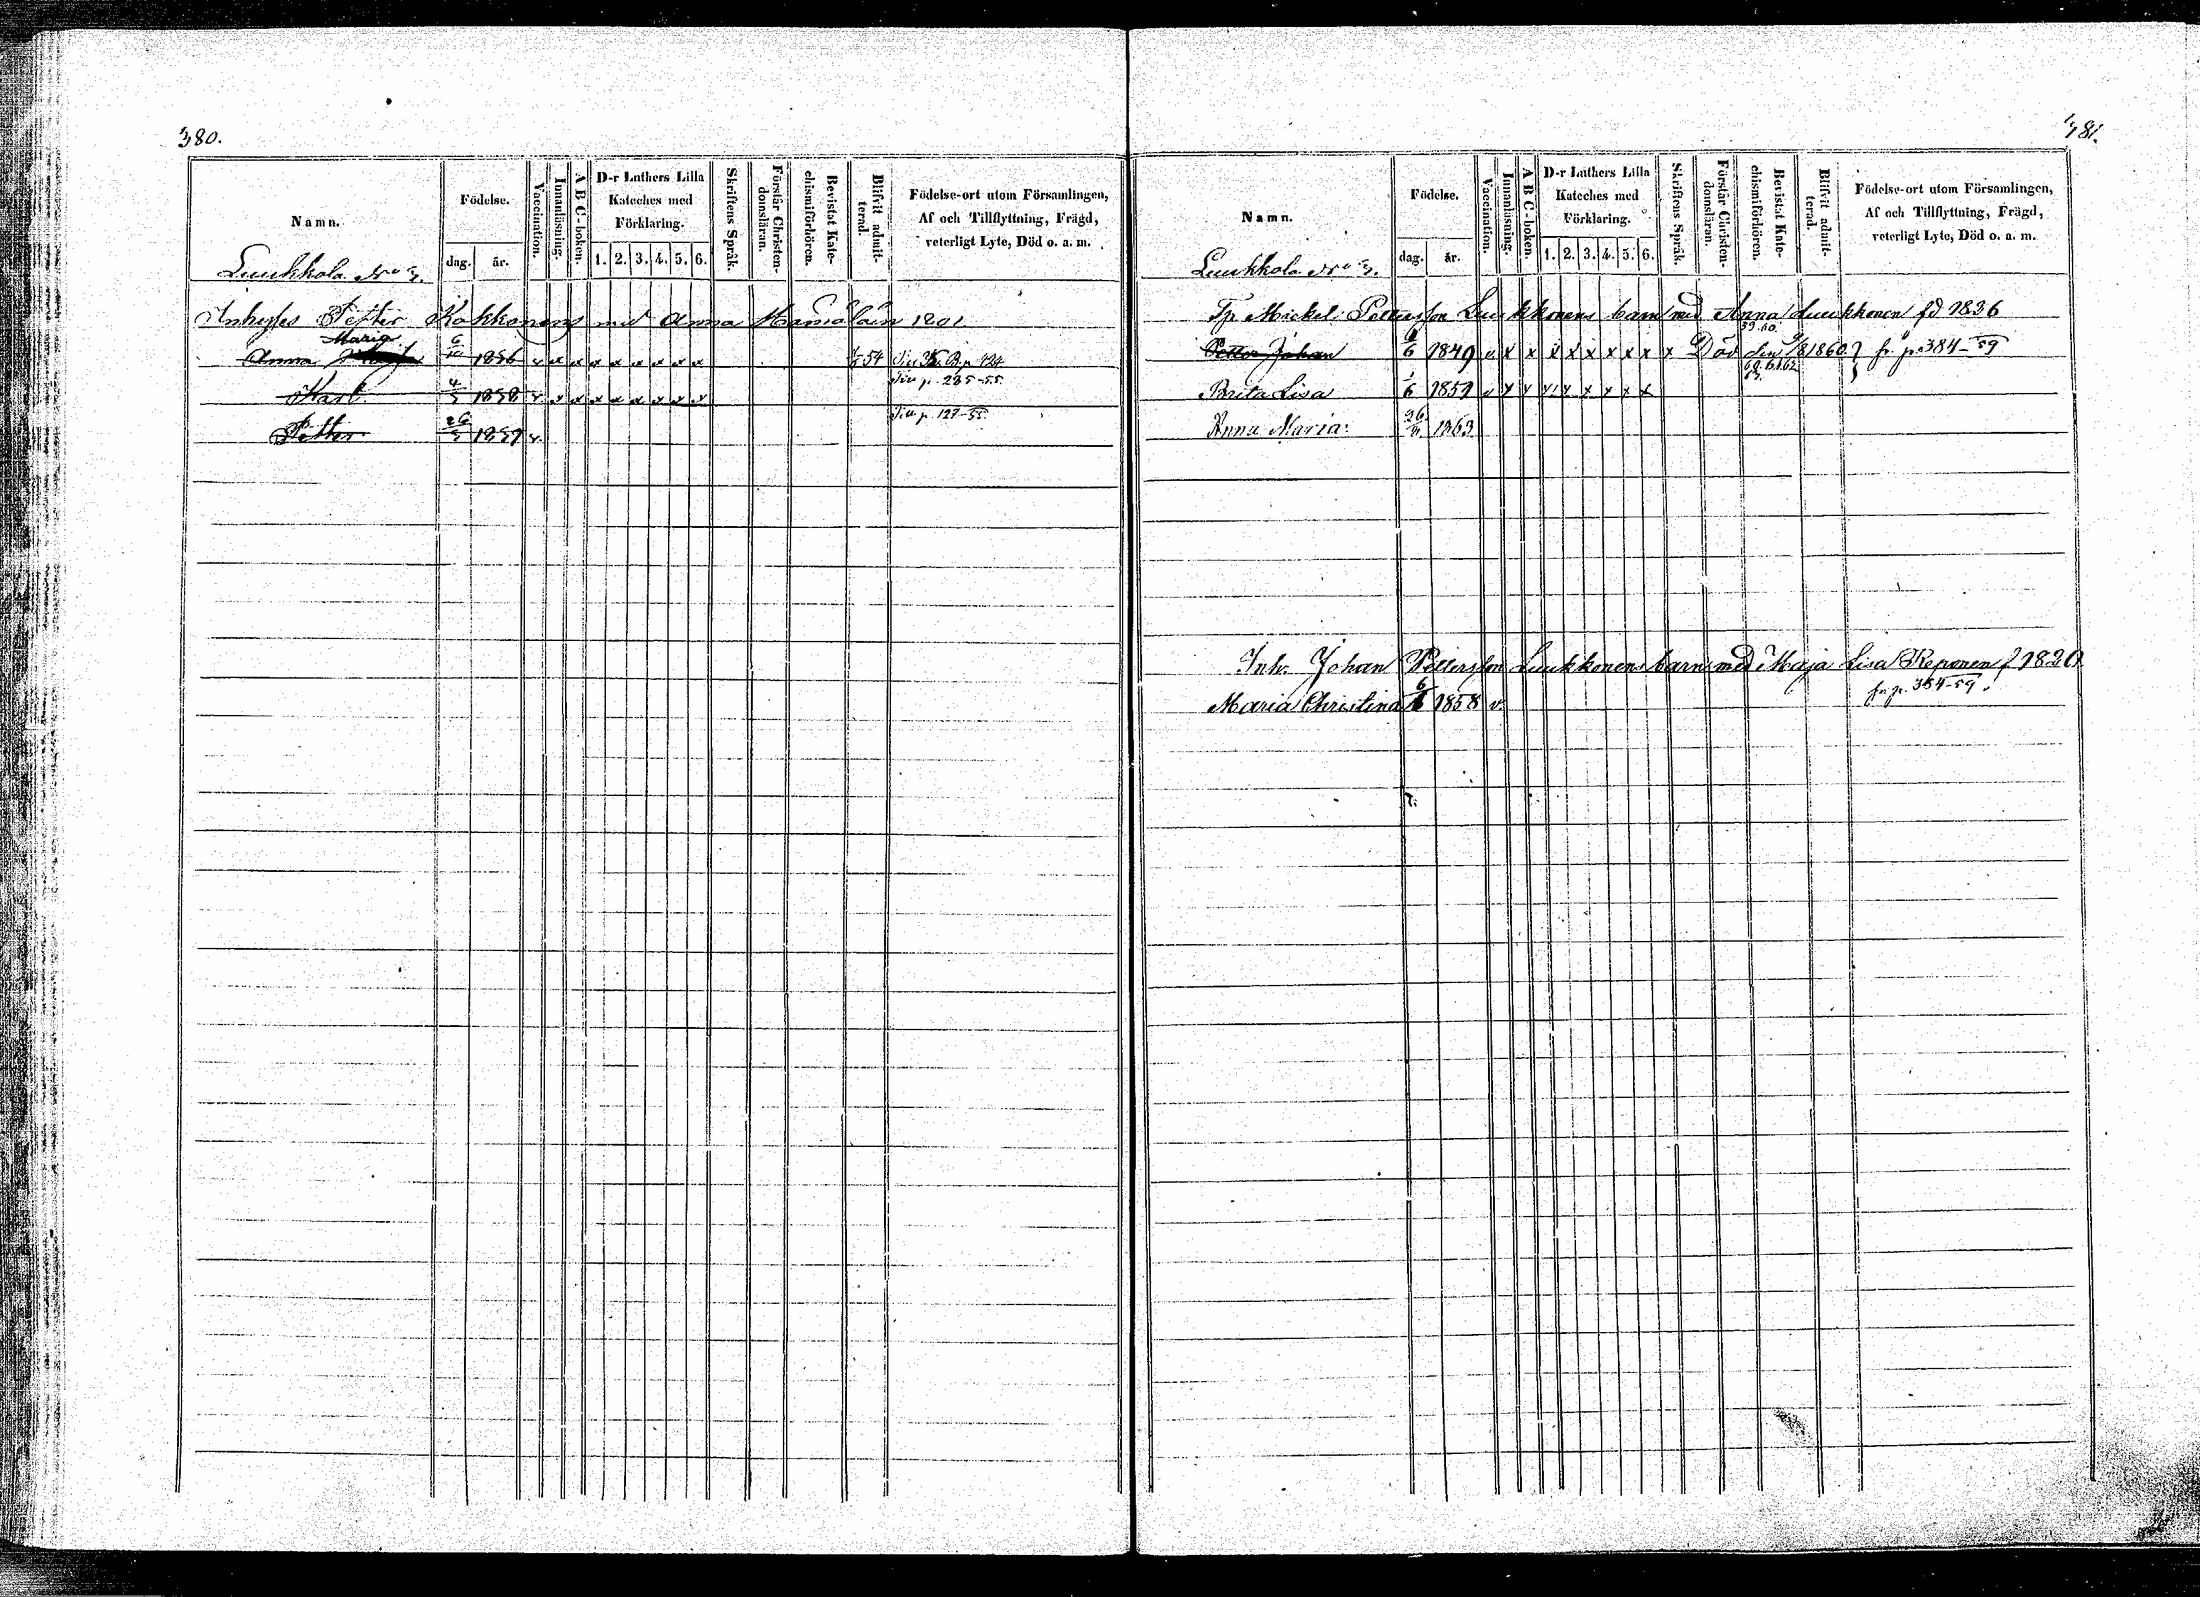 380.
Namn.
Födelse.
dag. år.
Vaccination.
Innanläsning.
A B C-boken.
D-r Luthers Lilla
Kateches med
Förklaring.
1. 2. 3. 4. 5. 6.
Skriftens Språk.
Förstår Christen-
domsläran.
Bevistat Kate-
chismiförhören.
Blifvit admit-
terad.
Födelse-ort utom Församlingen,
Af och Tillflyttning, Frägd,
veterligt Lyte, Död o. a. m.
Luukkola No 3.
Petter Kokkonens med Anna Hämäläin 1801
Maria
Anna 6/10 1836 v x x x x x x x x 54
Karl 4/5 1838 v x x x x x x x x p. 285-55.
Petter 26/5 1839 v. p. 127-55
381.
Namn.
Födelse.
dag. år.
Vaccination.
Innanläsning.
A B C-boken.
D-r Luthers Lilla
Kateches med
Förklaring.
1. 2. 3. 4. 5. 6.
Skriftens Språk.
Förstår Christen-
domsläran.
Bevistat Kate-
chismiförhören.
Blifvit admit-
terad.
Födelse-ort utom Församlingen,
Af och Tillflyttning, Frägd,
veterligt Lyte, Död o. a. m.
Luukkola No 3.
Mickel Pettersson Luukkonens barn med Anna Luukkonen fd 1836
59.60.
Petter Johan 1849 v x x x x x x x x x Död den 9/8 1860. } fr. p. 384-59
Brita Lisa 1851 v x x x x x x x x
Anna Maria 1863
Inh. Johan Pettersson Luukkonens barn med Maja Lisa Reponen f 1820
Maria Christina 1858 v. fr. p. 384-59.